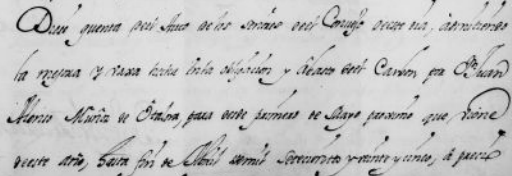 Dióse quenta del Auto de los señores del Consejo deste dia, admitiendo
la mejora y vaxa hecha en la obligacion y Abasto del Carbon por Juan
Alonso Muñiz de Otalora, para desde primero de Mayo proximo que viene
deeste año, hasta fin de Abril de mil setecientos y veinte y cinco, à precio